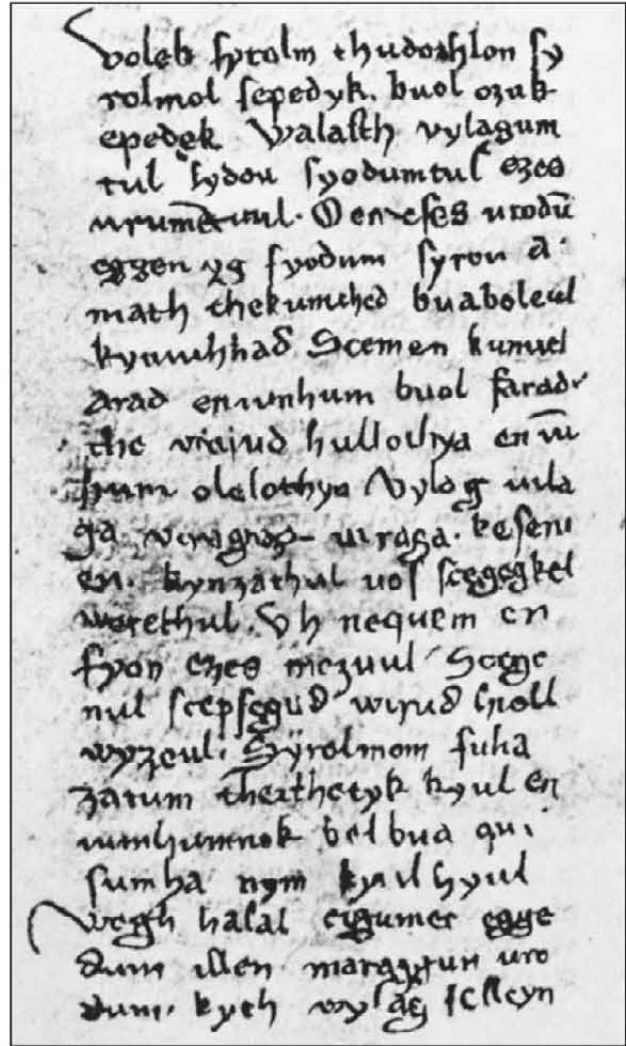 volek ſyrolm thudothlon ſy
rolmol ſepedyk. buol ozuk
epedek walaſth vylagum
tul ſydou fyodumtul ezes
urumemtuul. O en eſes urodū
eggen yg fyodum ſyrou a
niath thekunched buabeleul
kyniuhhad. Scemem kunuel
arad en iunhum buol farad
the werud hullothya en iu
hum olelothya Vylag uila
ga viragnac uiraga. keſeru
en. kynzathul uoſ scegegkel
werethul. Vh nequem en
fyon ezes mezuul Scege
nul scepſegud wirud hioll
wyzeul. Syrolmom fuha
zatum therthetyk kyul en
iumhumnok bel bua qui
ſumha nym kyul hyul
Wegh halal engumet egge
dum illen maraggun uro
dum. kyth wylag felleyn